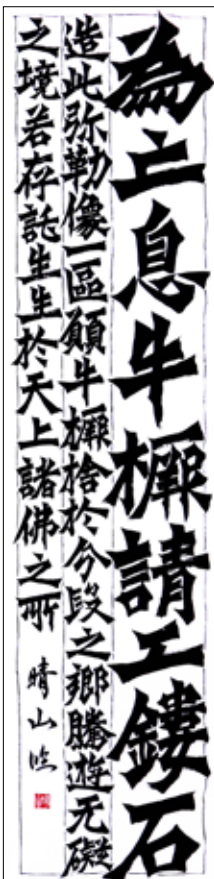 為亡息牛橛請工鏤石
造此弥勒像一區願牛橛捨於分段之鄉騰遊无礙
之境若存託生生於天上諸佛之所
晴山臨